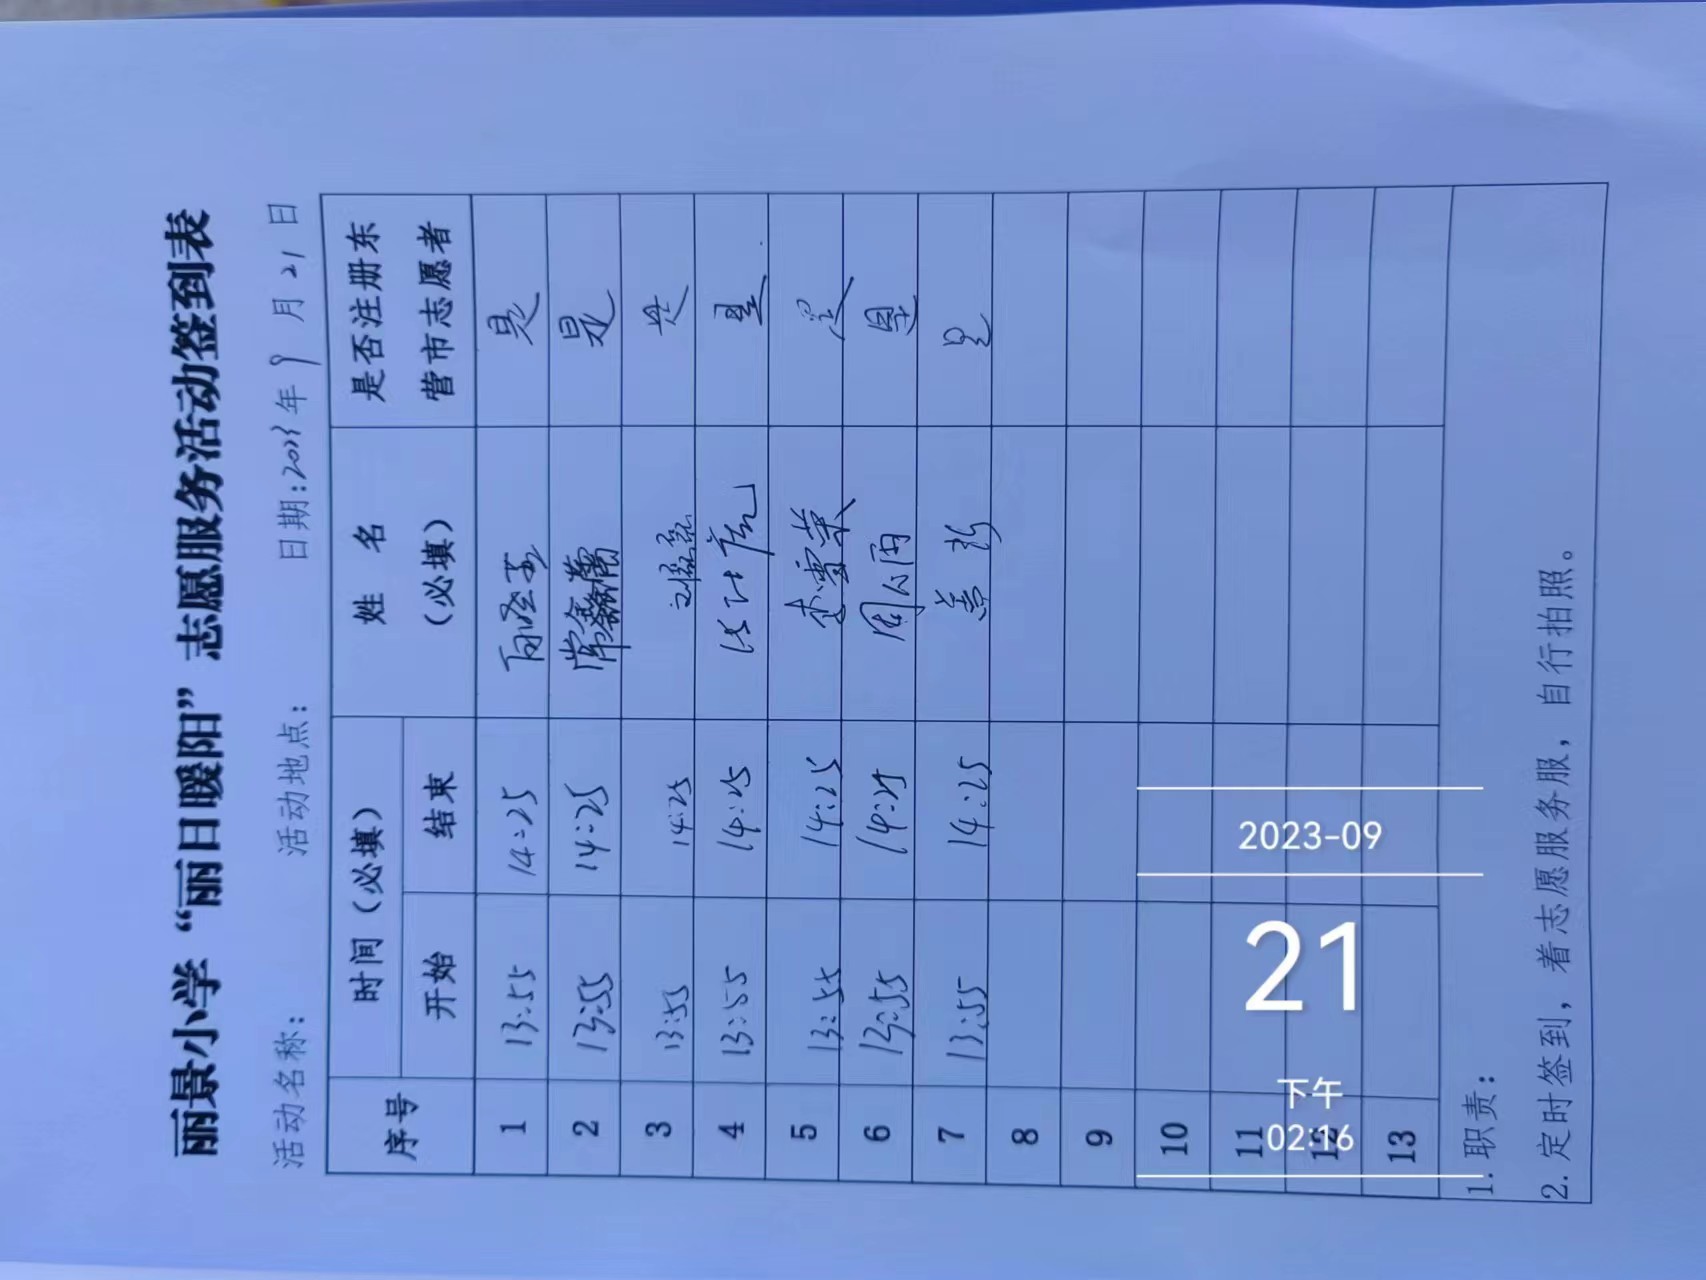 丽景小学“丽日暖阳”志愿服务活动签到表
活动名称： 活动地点： 日期:2023年9月21日
序号 时间（必填） 姓 名（必填） 是否注册东营市志愿者
开始 结束
1 13:55 14:25 是
2 13:55 14:25 常鑫蕾 是
3 13:55 14:25 是
4 13:55 14:25 是
5 13:55 14:25 李雪荣 是
6 13:55 14:25 周雨 是
7 13:55 14:25 是
8
9
10
11
12
13
1.职责：
2.定时签到，着志愿服务服，自行拍照。
2023-09
21
下午
02:16